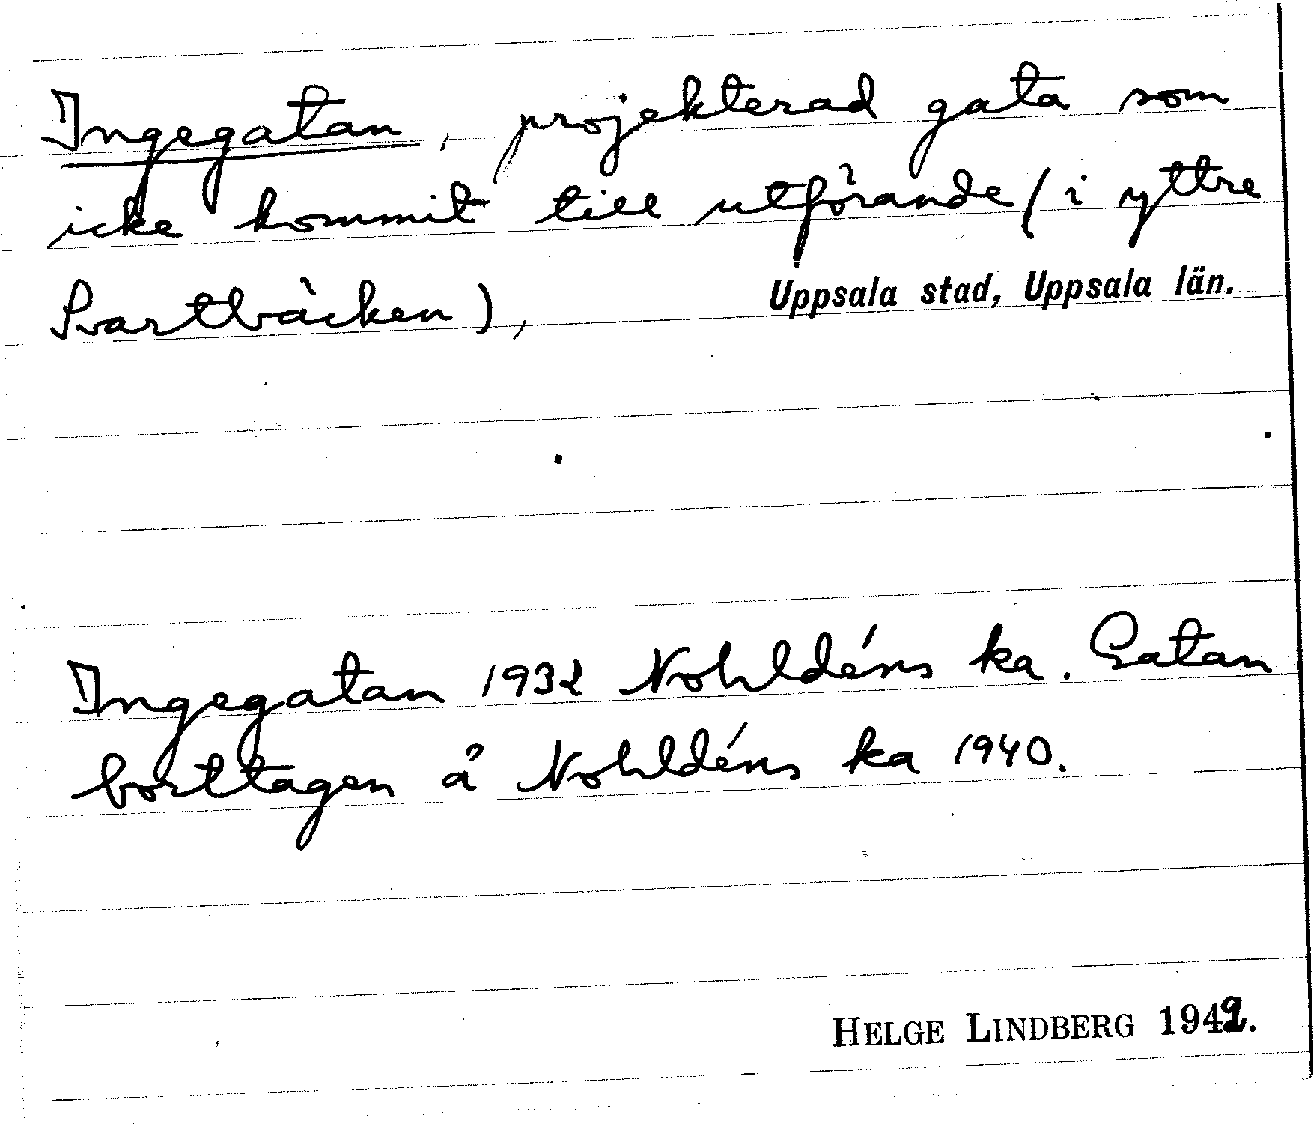 Ingegatan, projekterad gata som
icke kommit till utförande (i yttre
Svartbäcken),
Uppsala stad, Uppsala län.
Ingegatan 1932 Nohldéns ka. Gatan
borttagen å Nohldéns ka 1940.
HELGE LINDBERG 1942.